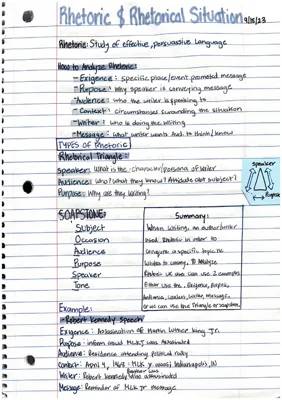 Rhetoric & Rhetorical Situation 9/15/23
Rhetoric: Study of effective, persuasive language
How to Analyze Rhetoric:
- Exigence: specific place/event promoted message
- Purpose: Why speaker is conveying message
- Audience: who the writer is speaking to
- Context: circumstances surrounding the situation
- Writer: who is doing the writing
- Message: what writer wants Aud. to think/know
TYPES of Rhetoric
Rhetorical Triangle:
Speaker: What is the character/persona of writer
Audience: who? what they know? Attitude abt subject?
Purpose: Why are they writing?
Speaker
SOAPSTONE:
Subject
Occasion
Audience
Purpose
Speaker
Tone
Summary:
When writing, an author/writer
used rhetoric in order to
a specific topic he
wishes to convey. To Analyze
we can use 2 examples
Either use the Exigence, purpose,
Audience, Context, writer, message,
or we can use the Triangle or soapstone.
Example:
- Robert Kennedy Speech
Exigence: Assassination of Martin Luther King Jr.
Purpose: inform crowd MLKJ was assassinated
Audience: Residence attending political rally
Context: April 4, 1968 - MLK Jr. Indianapolis, IN
Writer: Robert Kennedy Brother was assassinated
Message: Reminder of MLK Jr message